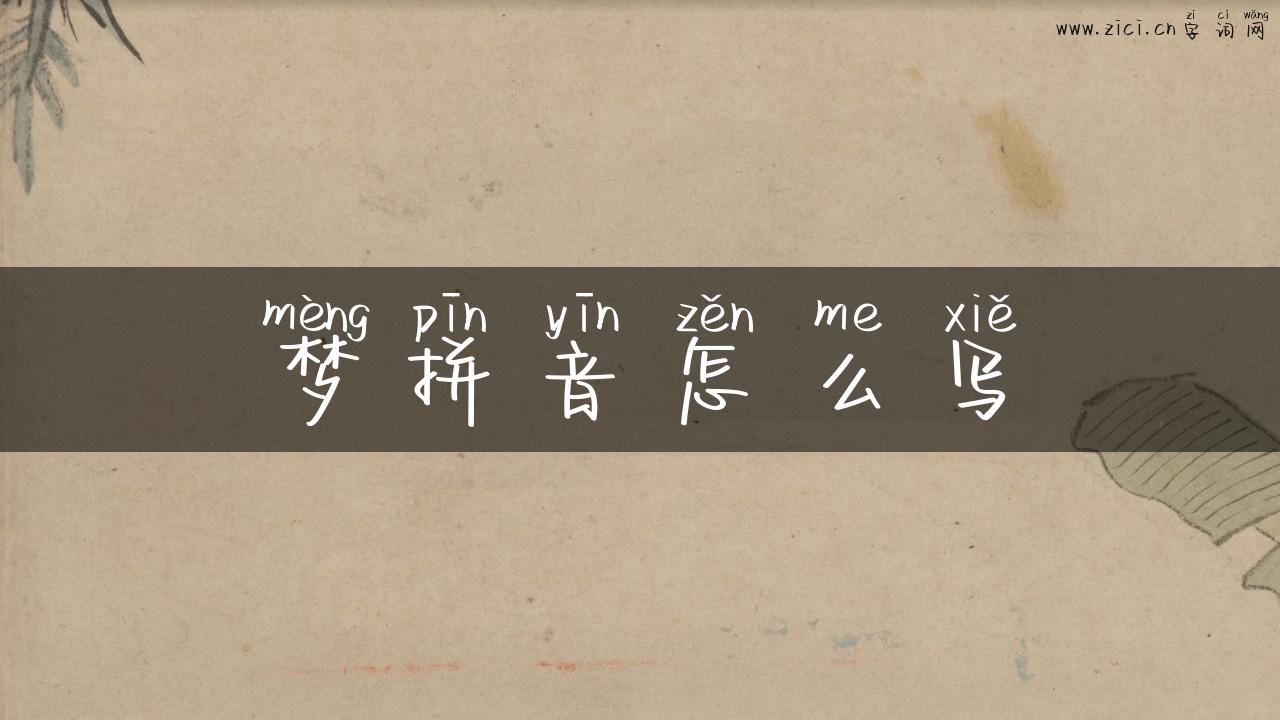 zì cí wǎng
www.zici.cn 字词网
mèng pīn yīn zěn me xiě
梦拼音怎么写